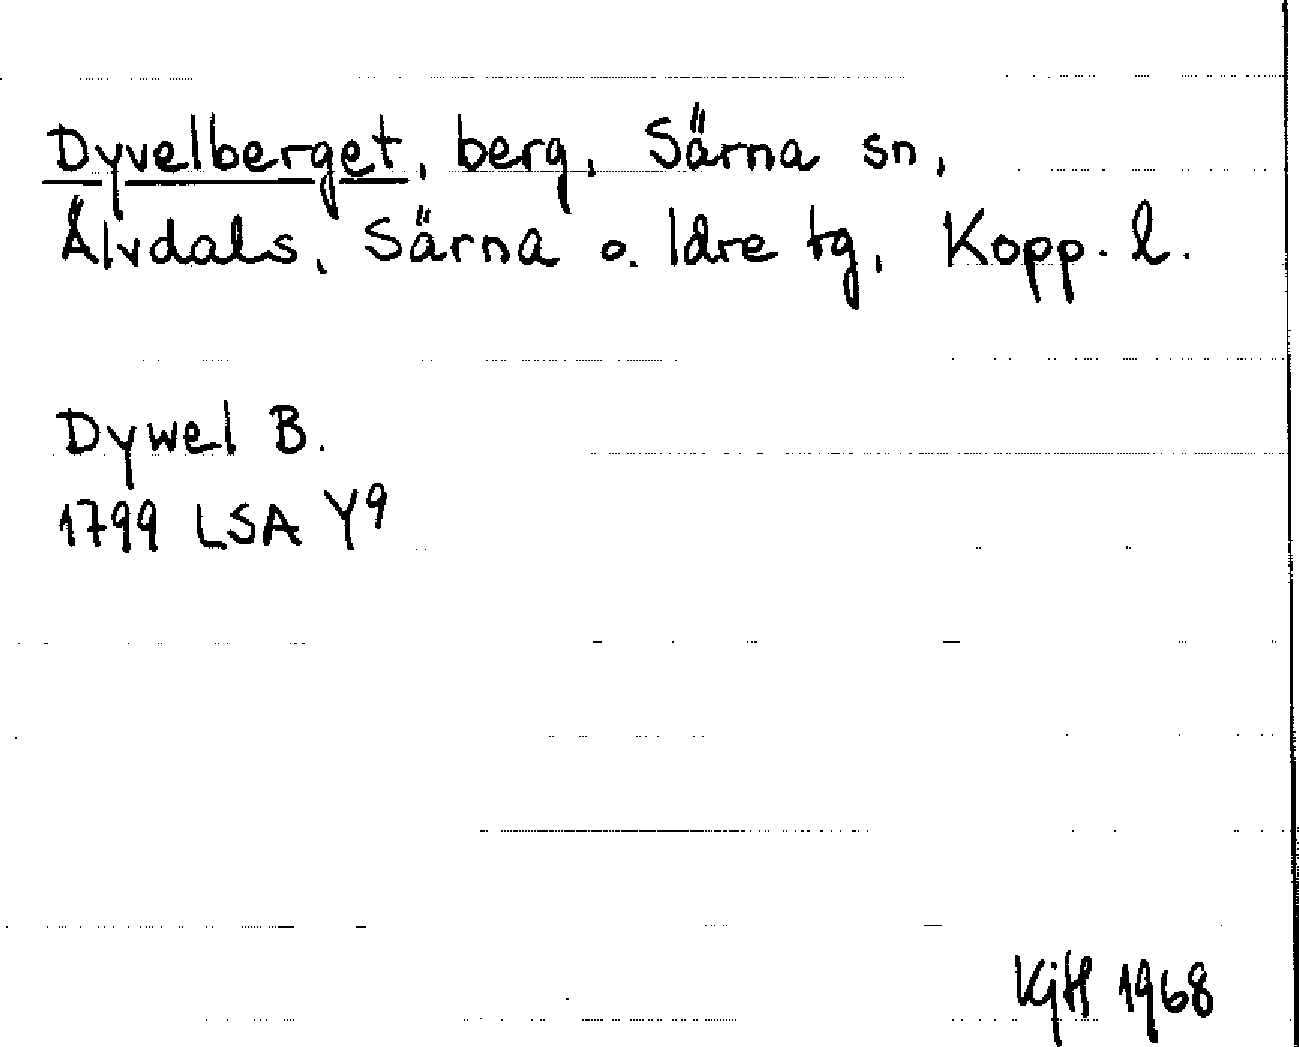 Dyvelberget, berg, Särna sn,
Älvdals, Särna o. Idre tg, Kopp. l.
Dywel B.
1799 LSA Y9
KjH 1968